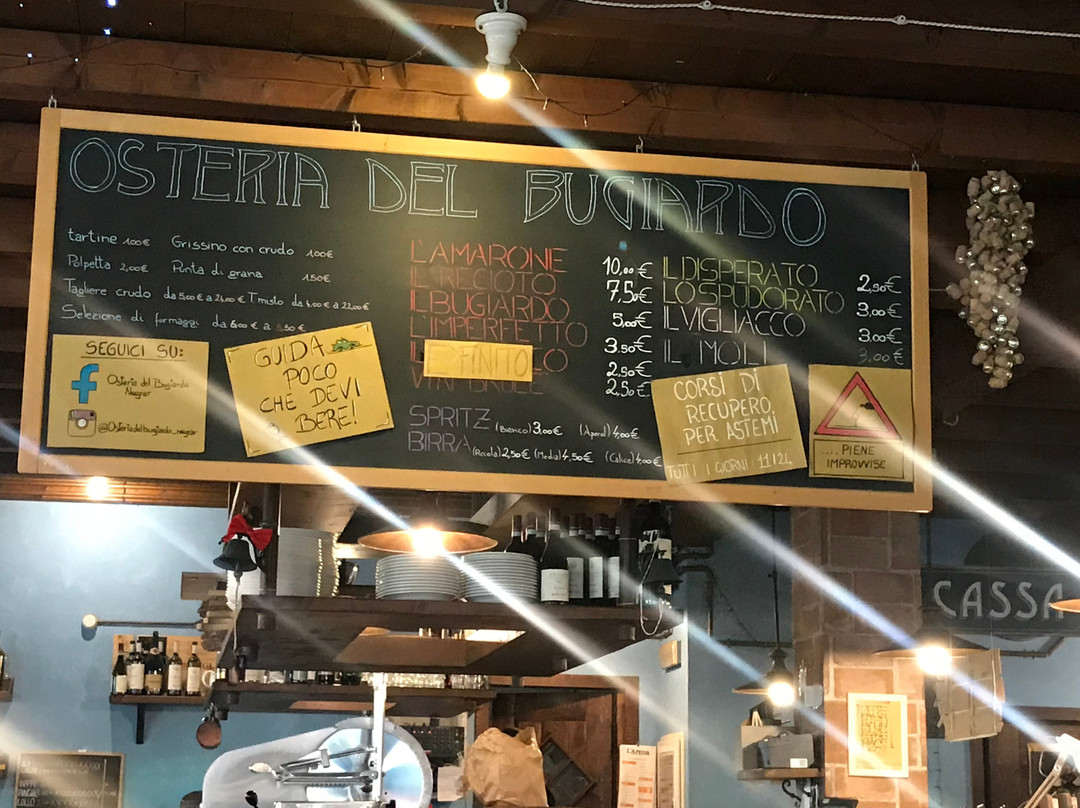 OSTERIA DEL BUGIARDO
tartine 1.00€ Grissino con crudo 1.00€
Polpetta 2,00€ Punta di grana 1.50€
Tagliere crudo da 5,00€ a 24,00€ T misto da 6,00€ a 22,00€
Selezione di formaggi da 6,00€ a
SEGUICI SU:
f Osteria del Bugiardo
Negrar
@Osteriadelbugiardo_negrar
GUIDA
POCO
CHE DEVI
BERE!
L'AMARONE 10,00€
IL RECIOTO 7,50€
IL BUGIARDO 5,00€
L'IMPERFETTO 3.50€
È FINITO 2,50€
VIN BRULÈ 2,50€
SPRITZ (Bianco) 3,00€ (Aperol) 4,00€
BIRRA (Piccola) 2,50€ (Media) 4,50€ (Calice) 4,00€
IL DISPERATO 2,50€
LO SPUDORATO 3,00€
IL VIGLIACCO 3,00€
IL MOLI 3,00€
CORSI DI
RECUPERO
PER ASTEMI
TUTTI I GIORNI 11|24
.... PIENE
IMPROVVISE
CASSA
L'Arena